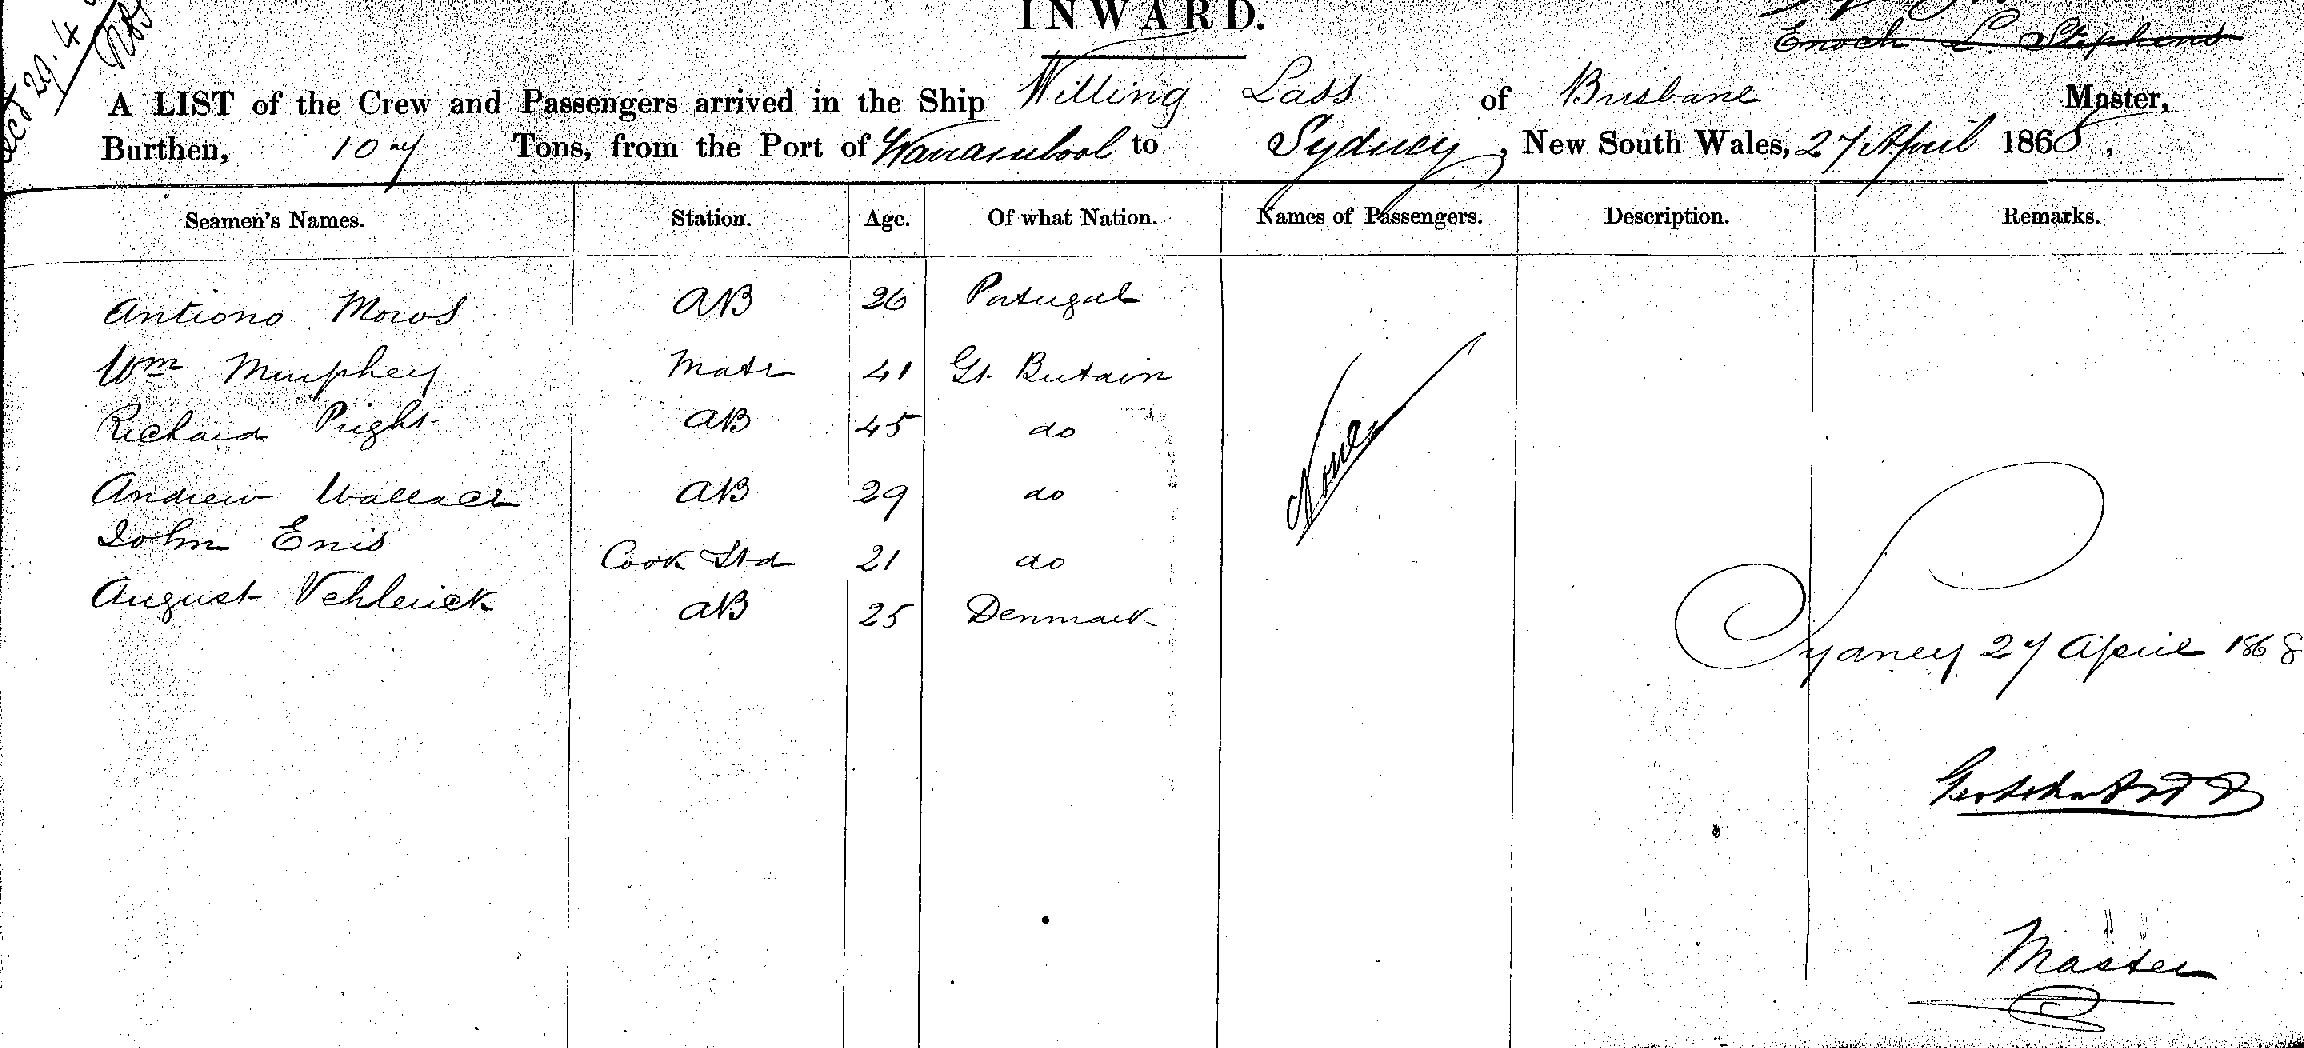 INWARD.
Enoch L Stephens
A LIST of the Crew and Passengers arrived in the Ship Willing Lass of Brisbane Master,
Burthen, 107 Tons, from the Port of Warrambool to Sydney, New South Wales, 27 April 1868.
Seamen's Names. Station. Age. Of what Nation. Names of Passengers. Description. Remarks.
Antiono AB 26 Portugal
Wm Murphey Mate 41 Gt. Britain
Richard Pright AB 45 do
None
Andrew Wallace AB 29 do
John Enis Cook Std 21 do
August AB 25 Denmark
Sydney 27 April 1868
Master